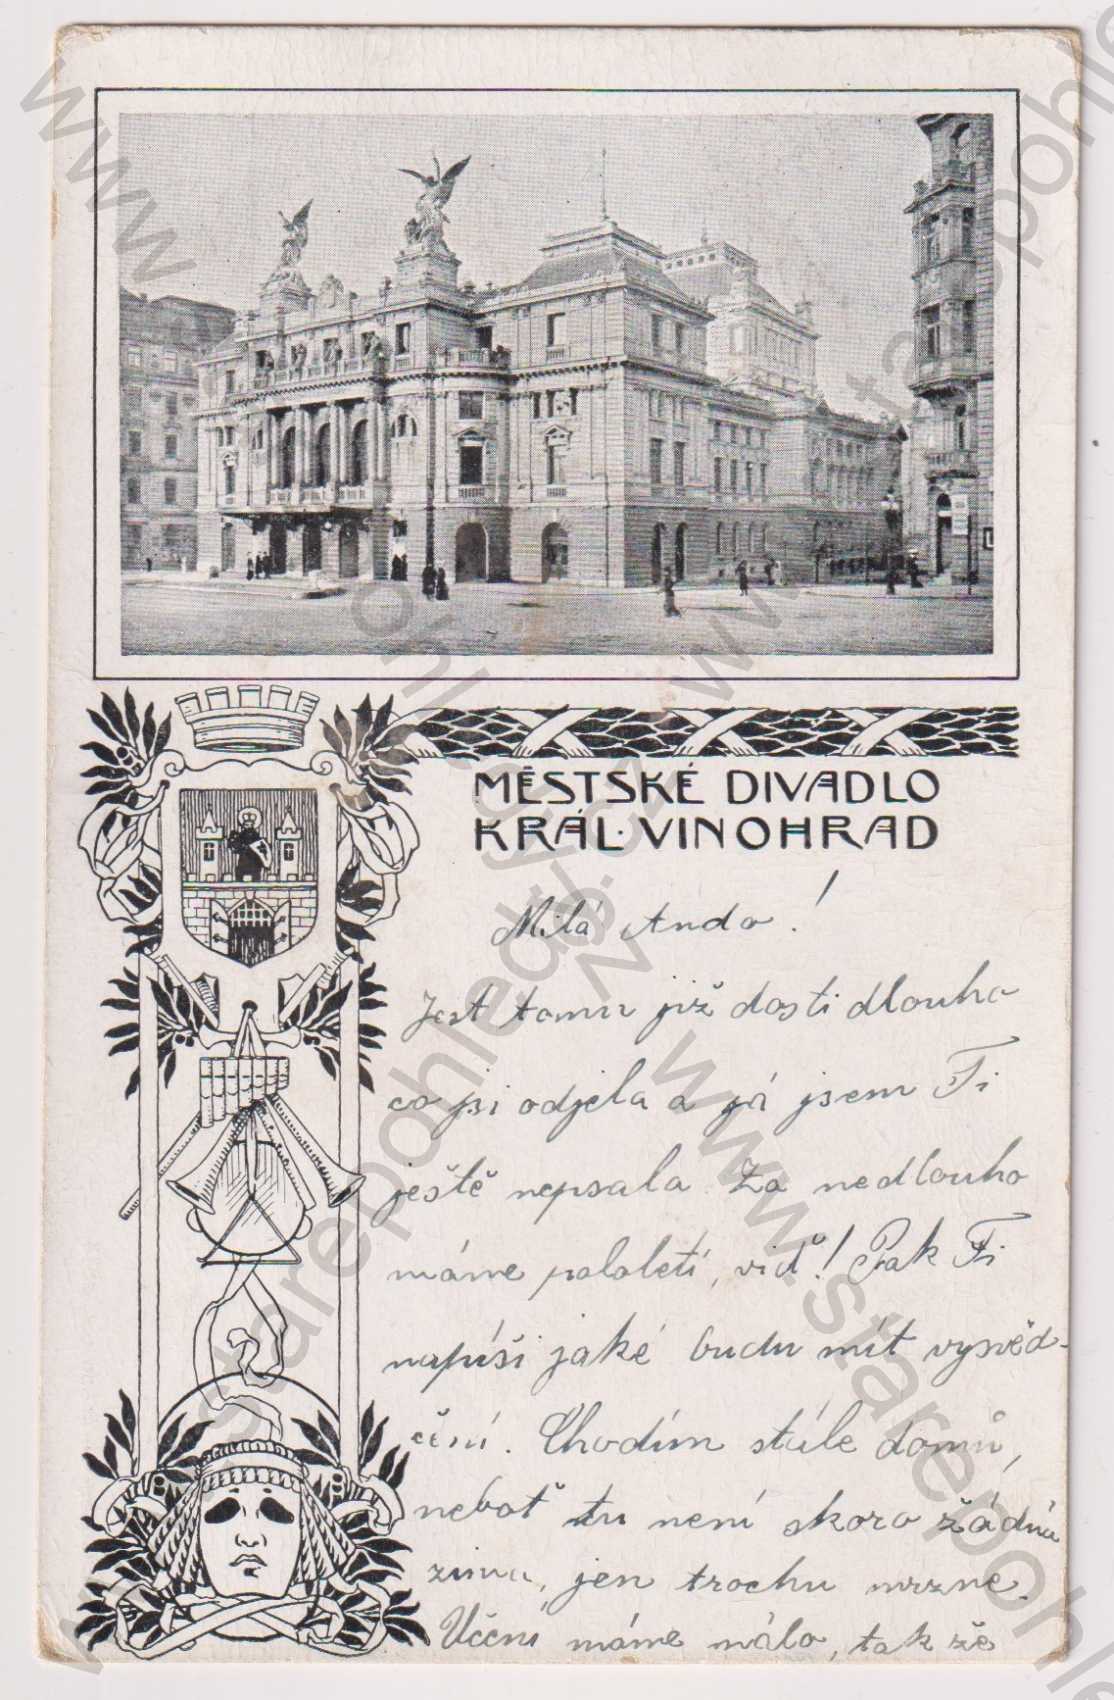 MĚSTSKÉ DIVADLO
KRÁL. VINOHRAD
Milá Ando!
Jest tomu již dosti dlouho
co jsi odjela a já jsem Ti
ještě nepsala. Za nedlouho
máme pololetí, viď! Pak Ti
napíši jaké budu mít vysvěd-
čení. Chodím stále domů,
neboť tu není skoro žádná
zima, jen trochu mrzne.
Učení máme málo, tak že
www.starepohledy.cz
www.starepohledy.cz